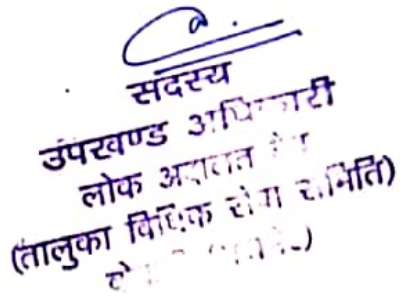 सदस्य
उपखण्ड अधिकारी
लोक अदालत
(तालुका विधिक सेवा समिति)